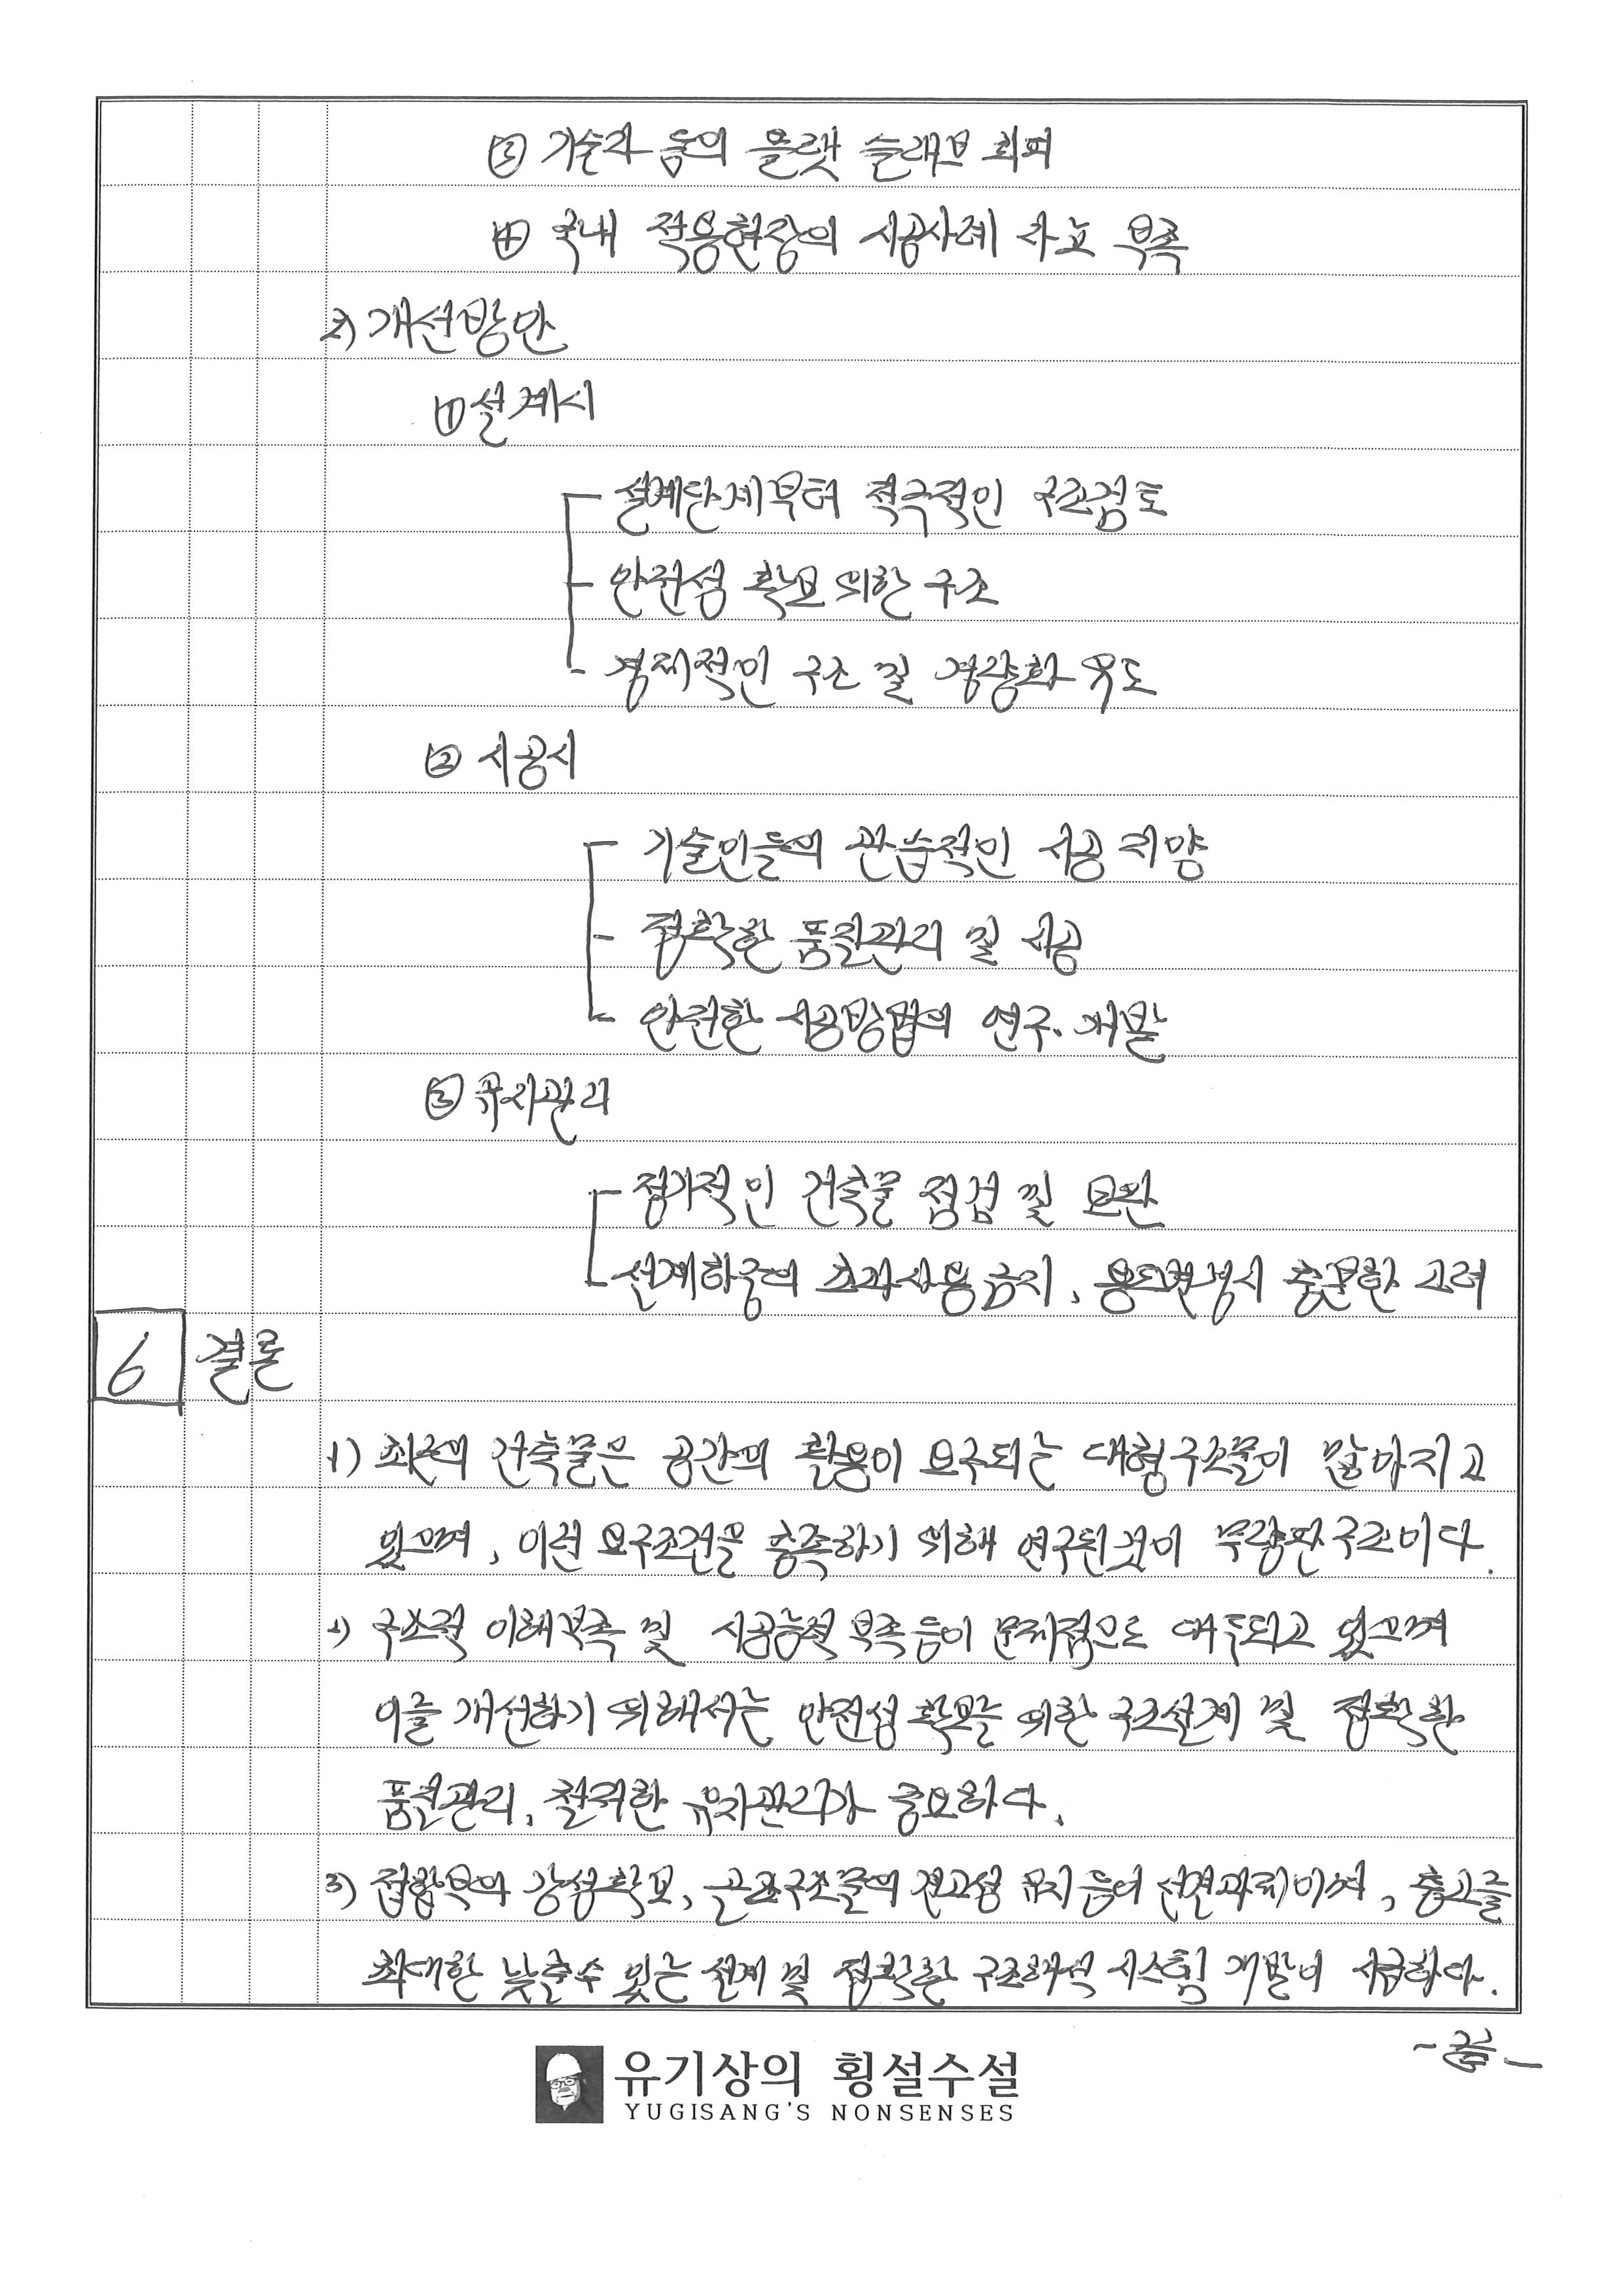 ③ 기술자 들의 플랫 슬래브 회피
④ 국내 적용현장의 시공사례 자료 부족
2) 개선방안
① 설계시
설계단계부터 적극적인 구조검토
안전성 확보 위한 구조
경제적인 구조 및 경량화 유도
② 시공시
기술인들의 관습적인 시공 지양
정확한 품질관리 및 시공
안전한 시공방법의 연구·개발
③ 유지관리
정기적인 건축물 점검 및 보완
설계하중의 초과사용금지, 용도변경시 충분한 고려
6 결론
1) 최근의 건축물은 공간의 활용이 요구되는 대형구조물이 많아지고
있으며, 이런 요구조건을 충족하기 위해 연구된것이 무량판구조이다.
2) 구조적 이해부족 및 시공능력 부족 등이 문제점으로 대두되고 있으며
이를 개선하기 위해서는 안전성 확보를 위한 구조설계 및 정확한
품질관리, 철저한 유지관리가 중요하다.
3) 접합부의 강성확보, 골조구조물의 견고성 유지 등이 선결과제이며, 층고를
최대한 낮출수 있는 설계 및 정확한 구조해석 시스템 개발이 시급하다.
-끝-
유기상의 횡설수설
YUGISANG'S NONSENSES